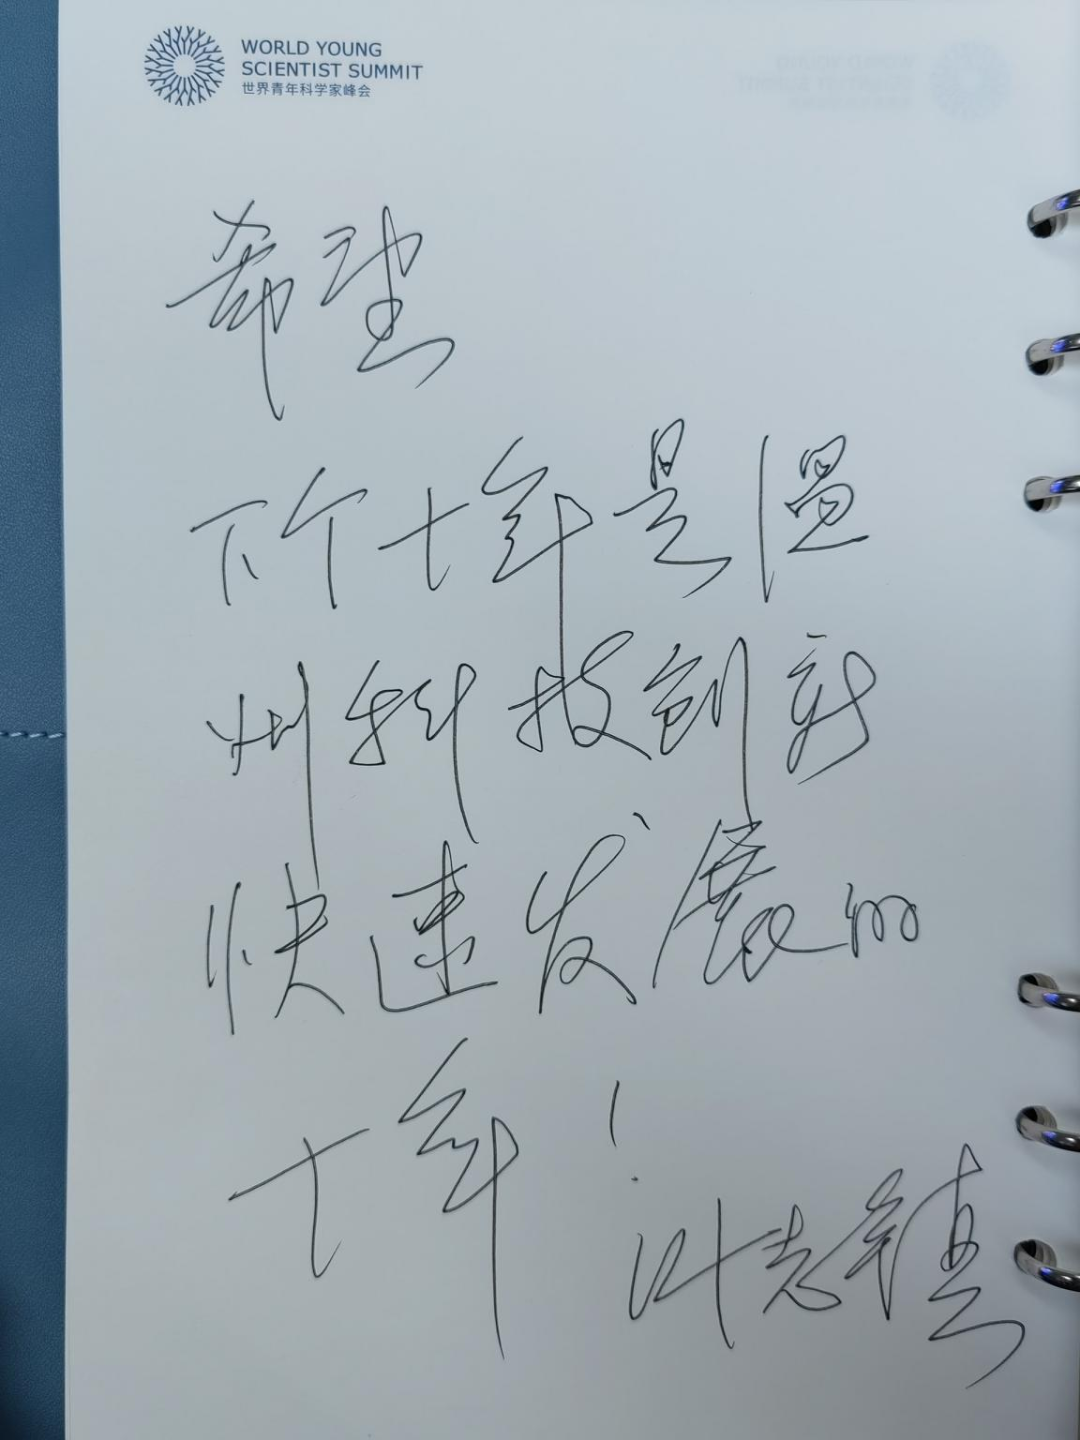 WORLD YOUNG
SCIENTIST SUMMIT
世界青年科学家峰会
希望
下个十年是温
州科技创新
快速发展的
十年！
叶志镇